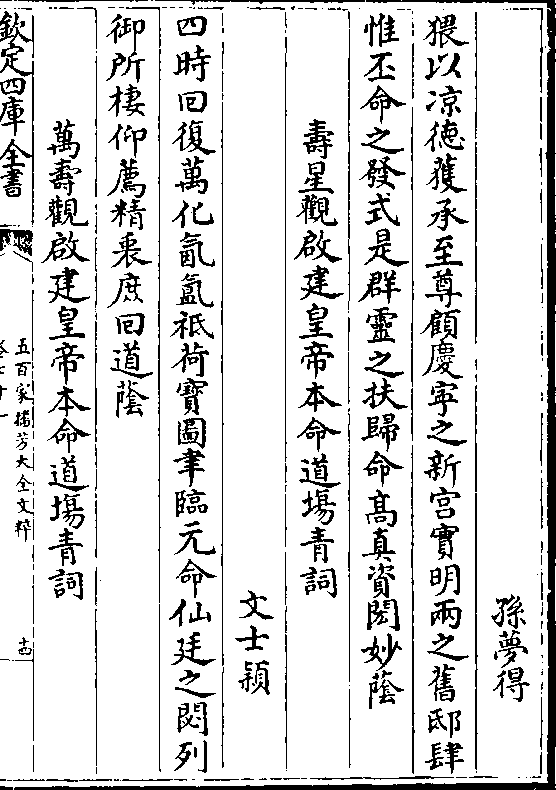 孫夢得
猥以凉德獲承至尊顧慶寜之新宫實明兩之舊邸肆
惟丕命之發式是群靈之扶歸命髙真資閎妙蔭
壽星觀啟建皇帝本命道塲青詞
文士穎
四時回復萬化氤氲祗荷寶圖聿臨元命仙廷之閟列
御所棲仰薦精衷庶回道蔭
萬壽觀啟建皇帝本命道塲青詞
欽定四庫全書
五百家播芳大全文粹
卷七十一
十四